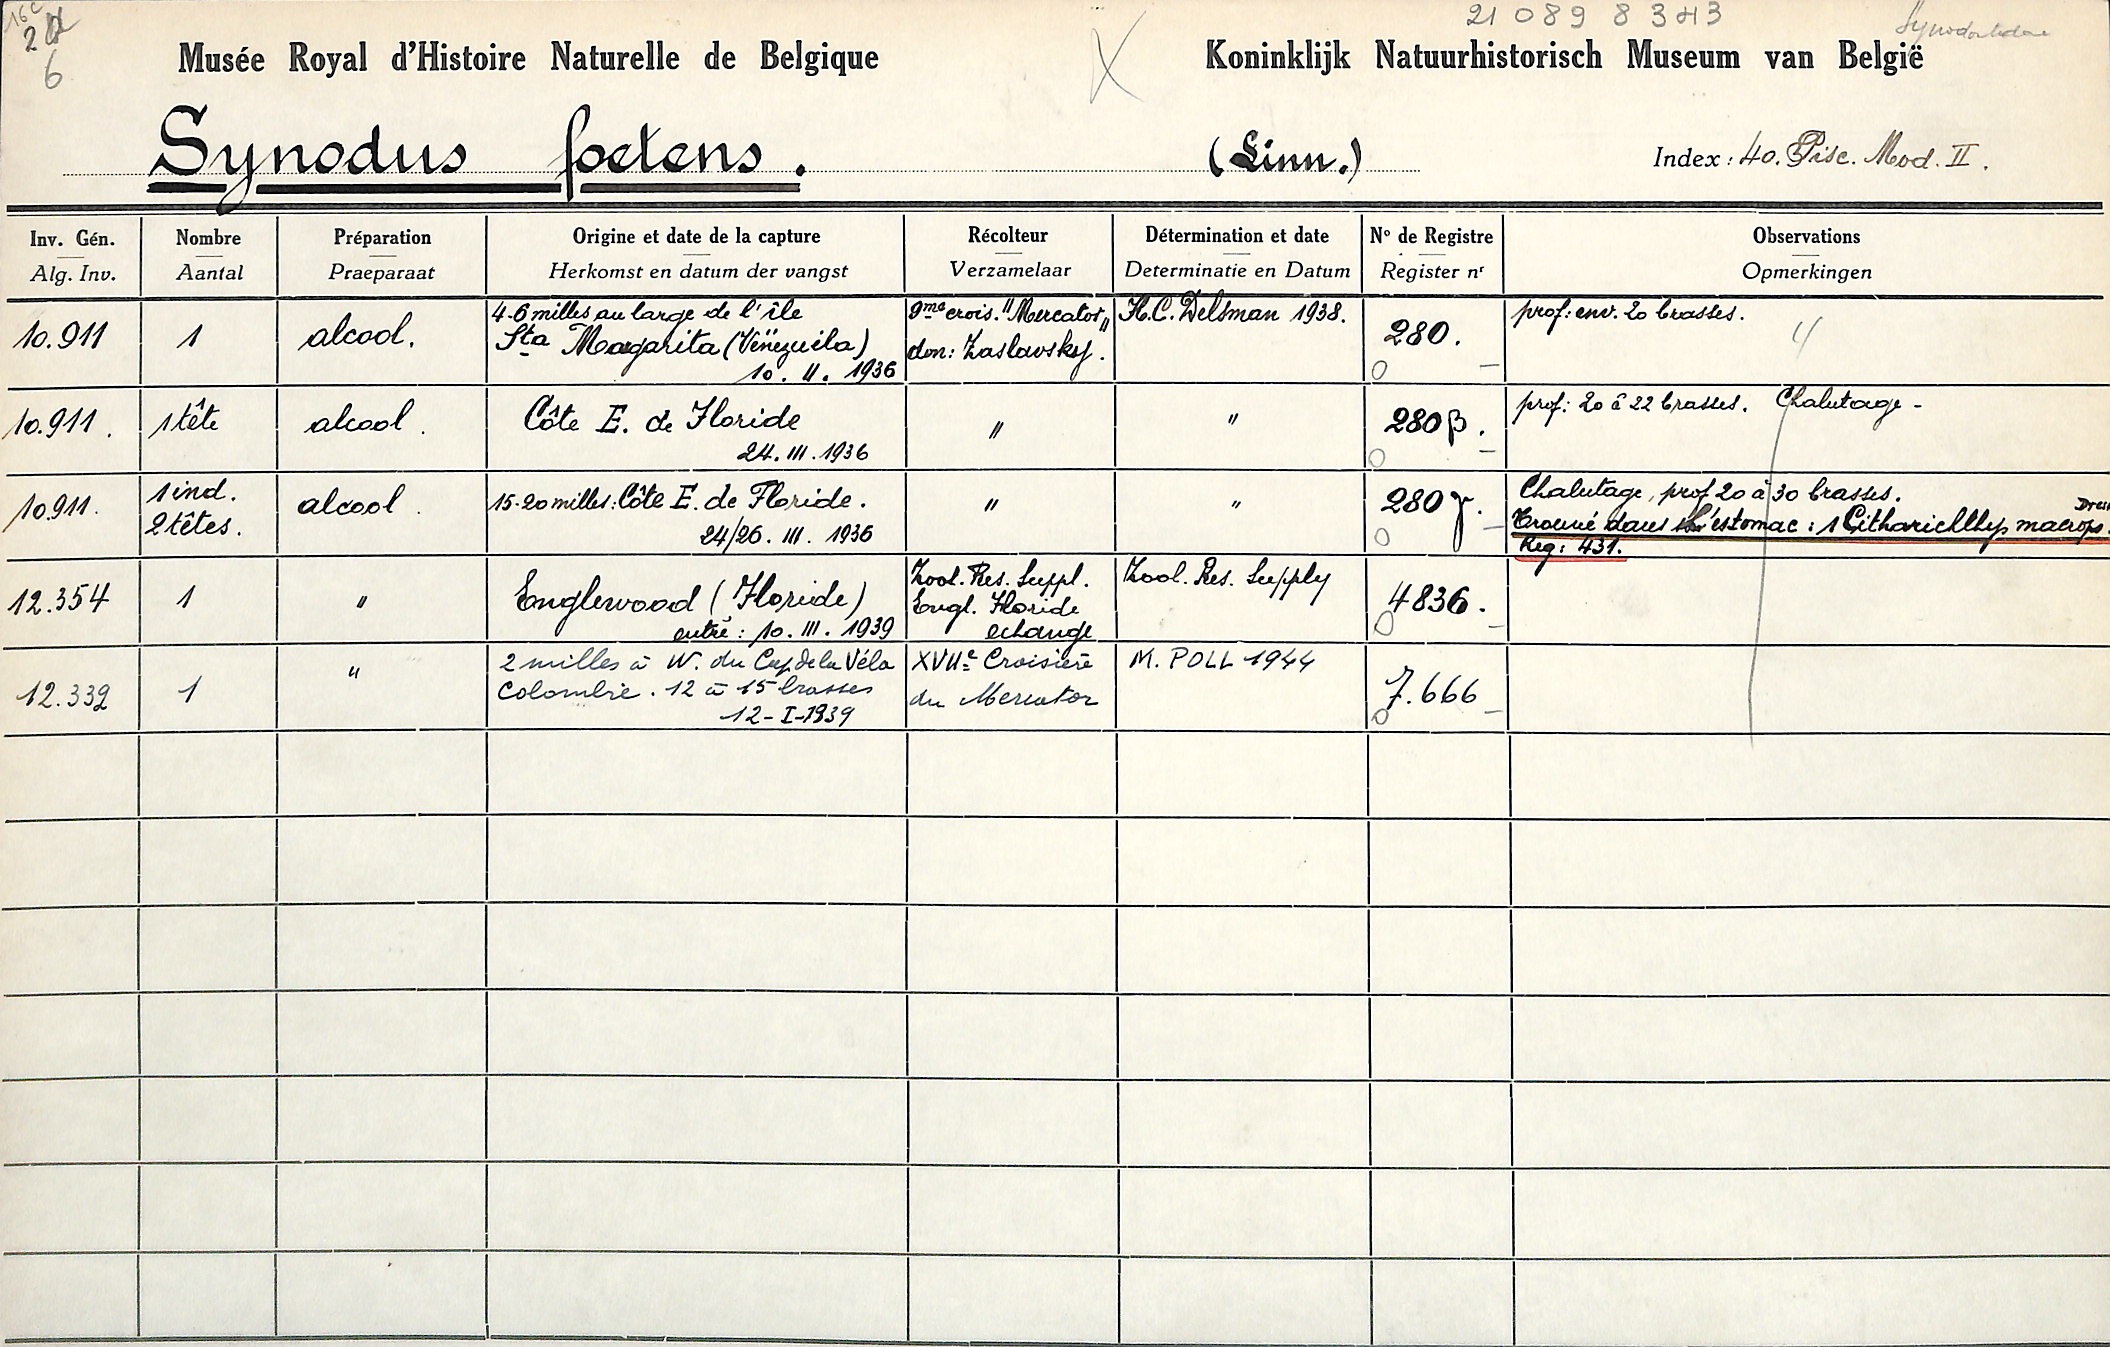 16c
2
6
21 089 8 343
Musée Royal d'Histoire Naturelle de Belgique
Koninklijk Natuurhistorisch Museum van België
Synodus foetens. (Linn.) Index : 40. Pisc. Mod. II.
Inv. Gén. Nombre Préparation Origine et date de la capture Récolteur Détermination et date N° de Registre Observations
Alg. Inv. Aantal Praeparaat Herkomst en datum der vangst Verzamelaar Determinatie en Datum Register nr Opmerkingen
10.911 1 alcool. 4-6 milles au large de l'île
Sta Margarita (Vénézuéla)
10. II. 1936
9me crois. "Mercator"
don: Zaslavsky.
H.C. Delsman 1938. 280. prof: env. 20 brasses.
10.911. 1 tête alcool. Côte E. de Floride
24. III. 1936
" " 280β. prof: 20 à 22 brasses. Chalutage -
10.911. 1 ind.
2 têtes.
alcool. 15-20 milles: Côte E. de Floride.
24/26. III. 1936
" " 280γ. Chalutage, prof 20 à 30 brasses.
Trouvé dans l'estomac : 1 Citharichthys macrops.
Reg: 431.
12.354 1 " Englewood (Floride)
entré: 10. III. 1939
Zool. Res. Suppl.
Engl. Floride
echange
Zool. Res. Supply 4836.
12.339 1 " 2 milles à W. du Cap de la Véla
Colombie. 12 à 15 brasses
12-I-1939
XVIIe Croisière
du Mercator
M. POLL 1944 7.666